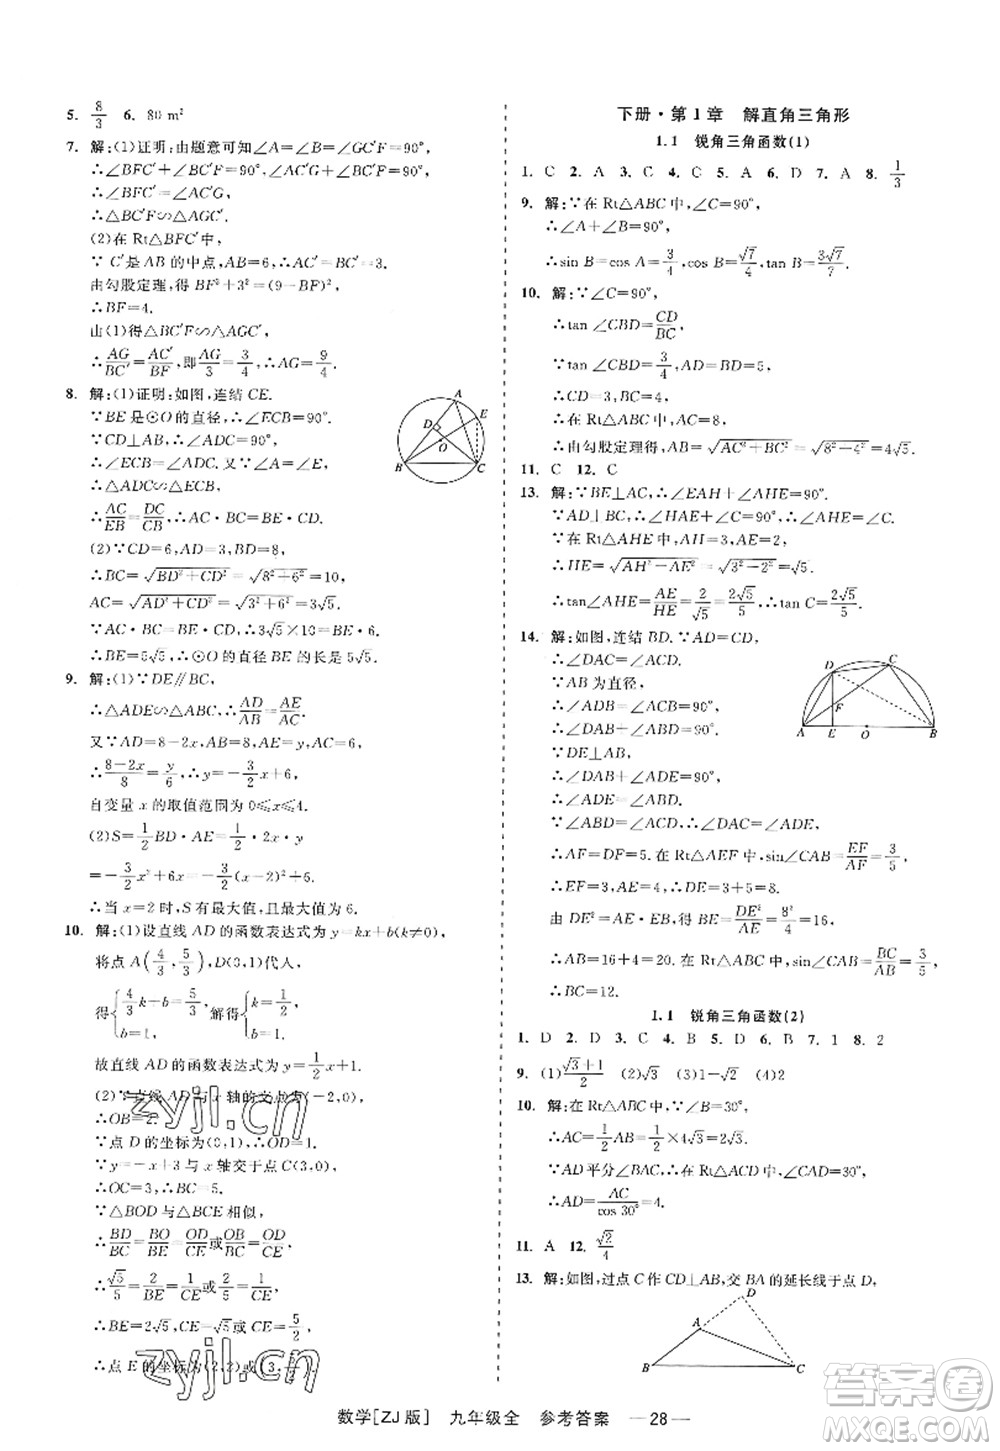 5. 8/3  6. 80 m²
7. 解:(1)证明:由题意可知∠A=∠B=90°,
∴∠BFC′+∠BC′F=90°,
∠BFC′=∠AC′G,
∴△BC′F∽△AGC′.
(2)在 Rt△BFC′中,
∵ C′是 AB 的中点,AB=6,∴BC′=3.
由勾股定理,得 BF²+3²=(9-BF)²,
∴BF=4.
由(1)得△BC′F∽△AGC′,
∴AG/BC′=AC′/BF,即AG/3=3/4,∴AG=9/4.
8. 解:(1)证明:如图,连结 CE.
∵BE 是⊙O 的直径,∴∠ECB=90°.
∵CD⊥AB,∴∠ADC=90°.
∴∠ECB=∠ADC.又∵∠A=∠E,
∴△ADC∽△ECB,
∴AC/EB=DC/CB,∴AC·BC=BE·CD.
(2)∵CD=6,AD=3,BD=8,
∴BC=√(BD²+CD²)=√(8²+6²)=10,
AC=√(AD²+CD²)=√(3²+6²)=3√5.
∵AC·BC=BE·CD,∴3√5×10=BE·6.
∴BE=5√5,∴⊙O 的直径 BE 的长是 5√5.
A
D
E
O
B
C
9. 解:(1)∵DE∥BC,
∴△ADE∽△ABC,∴AD/AB=AE/AC.
又∵AD=8-2x,AB=8,AE=y,AC=6,
∴(8-2x)/8=y/6,∴y=-3/2x+6,
自变量 x 的取值范围为 0≤x≤4.
(2)S=1/2BD·AE=1/2·2x·y
=-3/2x²+6x=-3/2(x-2)²+6,
∴当 x=2 时,S 有最大值,且最大值为 6.
10. 解:(1)设直线 AD 的函数表达式为 y=kx+b(k≠0),
将点 A(4/3,5/3),D(0,1)代入,
得{4/3k+b=5/3, b=1, 解得{k=1/2, b=1.
故直线 AD 的函数表达式为 y=1/2x+1.
(2)∵直线 AD 与 x 轴的交点为(-2,0),
∴OB=2.
∵点 D 的坐标为(0,1),∴OD=1.
∵y=-x+3 与 x 轴交于点 C(3,0),
∴OC=3,∴BC=5.
∵△BOD 与△BCE 相似,
∴BD/BC=BO/BE=OD/CE或OB/BC=BD/BE=OD/CE,
∴√5/5=2/BE=1/CE或2/5=√5/BE=1/CE,
∴BE=2√5,CE=√5或 CE=5/2,
∴点 E 的坐标为(2,2)或(3,5/2).
zyjl.cn
zyjl.cn
下册·第 1 章 解直角三角形
1.1 锐角三角函数(1)
1. C 2. A 3. C 4. A 5. A 6. D 7. A 8. 1/3
9. 解:∵在 Rt△ABC 中,∠C=90°,
∴∠A+∠B=90°,
∴sin B=cos A=3/4,cos B=√7/4,tan B=3√7/7.
10. 解:∵∠C=90°,
∴tan ∠CBD=CD/BC.
∵tan ∠CBD=3/4,AD=5,BC=4,
∴CD=3,∴AC=8.
∴在 Rt△ABC 中,
∴由勾股定理得,AB=√(AC²+BC²)=√(8²+4²)=4√5.
11. C 12. C
13. 解:∵BE⊥AC,∴∠EAH+∠AHE=90°.
∵AD⊥BC,∴∠HAE+∠C=90°,∴∠AHE=∠C.
∵在 Rt△AHE 中,AH=3,AE=2,
∴HE=√(AH²-AE²)=√(3²-2²)=√5,
∴tan∠AHE=AE/HE=2/√5=2√5/5,∴tan C=2√5/5.
14. 解:如图,连结 BD.∵AD=CD,
∴∠DAC=∠ACD.
∵AB 为直径,
∴∠ADB=∠ACB=90°,
∴∠DAB+∠ABD=90°.
∵DE⊥AB,
∴∠DAB+∠ADE=90°,
∴∠ADE=∠ABD.
∵∠ABD=∠ACD,∴∠DAC=∠ADE,
∴AF=DF=5.在 Rt△AEF 中,sin∠CAB=EF/AF=3/5,
∴EF=3,AE=4,∴DE=8.
由 DE²=AE·EB,得 BE=DE²/AE=8²/4=16,
∴AB=16+4=20.在 Rt△ABC 中,sin ∠CAB=BC/AB=3/5,
∴BC=12.
D
C
F
A
E
O
B
1.1 锐角三角函数(2)
1. D 2. D 3. C 4. B 5. D 6. B 7. 1 8. 2
9. (1)(√3+1)/2 (2)√3 (3)1-√2 (4)2
10. 解:在 Rt△ABC 中,∠B=30°,
∴AC=1/2AB=1/2×4√3=2√3.
∵AD 平分∠BAC,∴在 Rt△ACD 中,∠CAD=30°,
∴AD=AC/cos 30°=4.
11. A 12. √2/4
13. 解:如图,过点 C 作 CD⊥AB,交 BA 的延长线于点 D,
D
A
B
C
数学[ZJ版] 九年级全 参考答案 —28—
答案圈
MXQE.COM